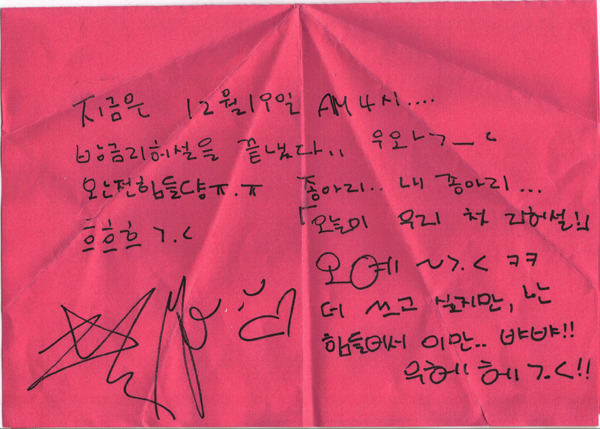 지금은 12월19일 AM 4시....
방금리허설을 끝냈다,, 우오ㄴㄱ_ㄴ
완전힘들댱ㅠ.ㅠ 종아리.. 내 종아리...
흐흐흐 ㄱ.<
「오늘이 우리 첫 리허설!!」
오예 ~ㄱ.< ㅋㅋ
더 쓰고 싶지만, 나는
힘들어서 이만.. 뱌뱌!!
우헤헤헤 ㄱ.<!!